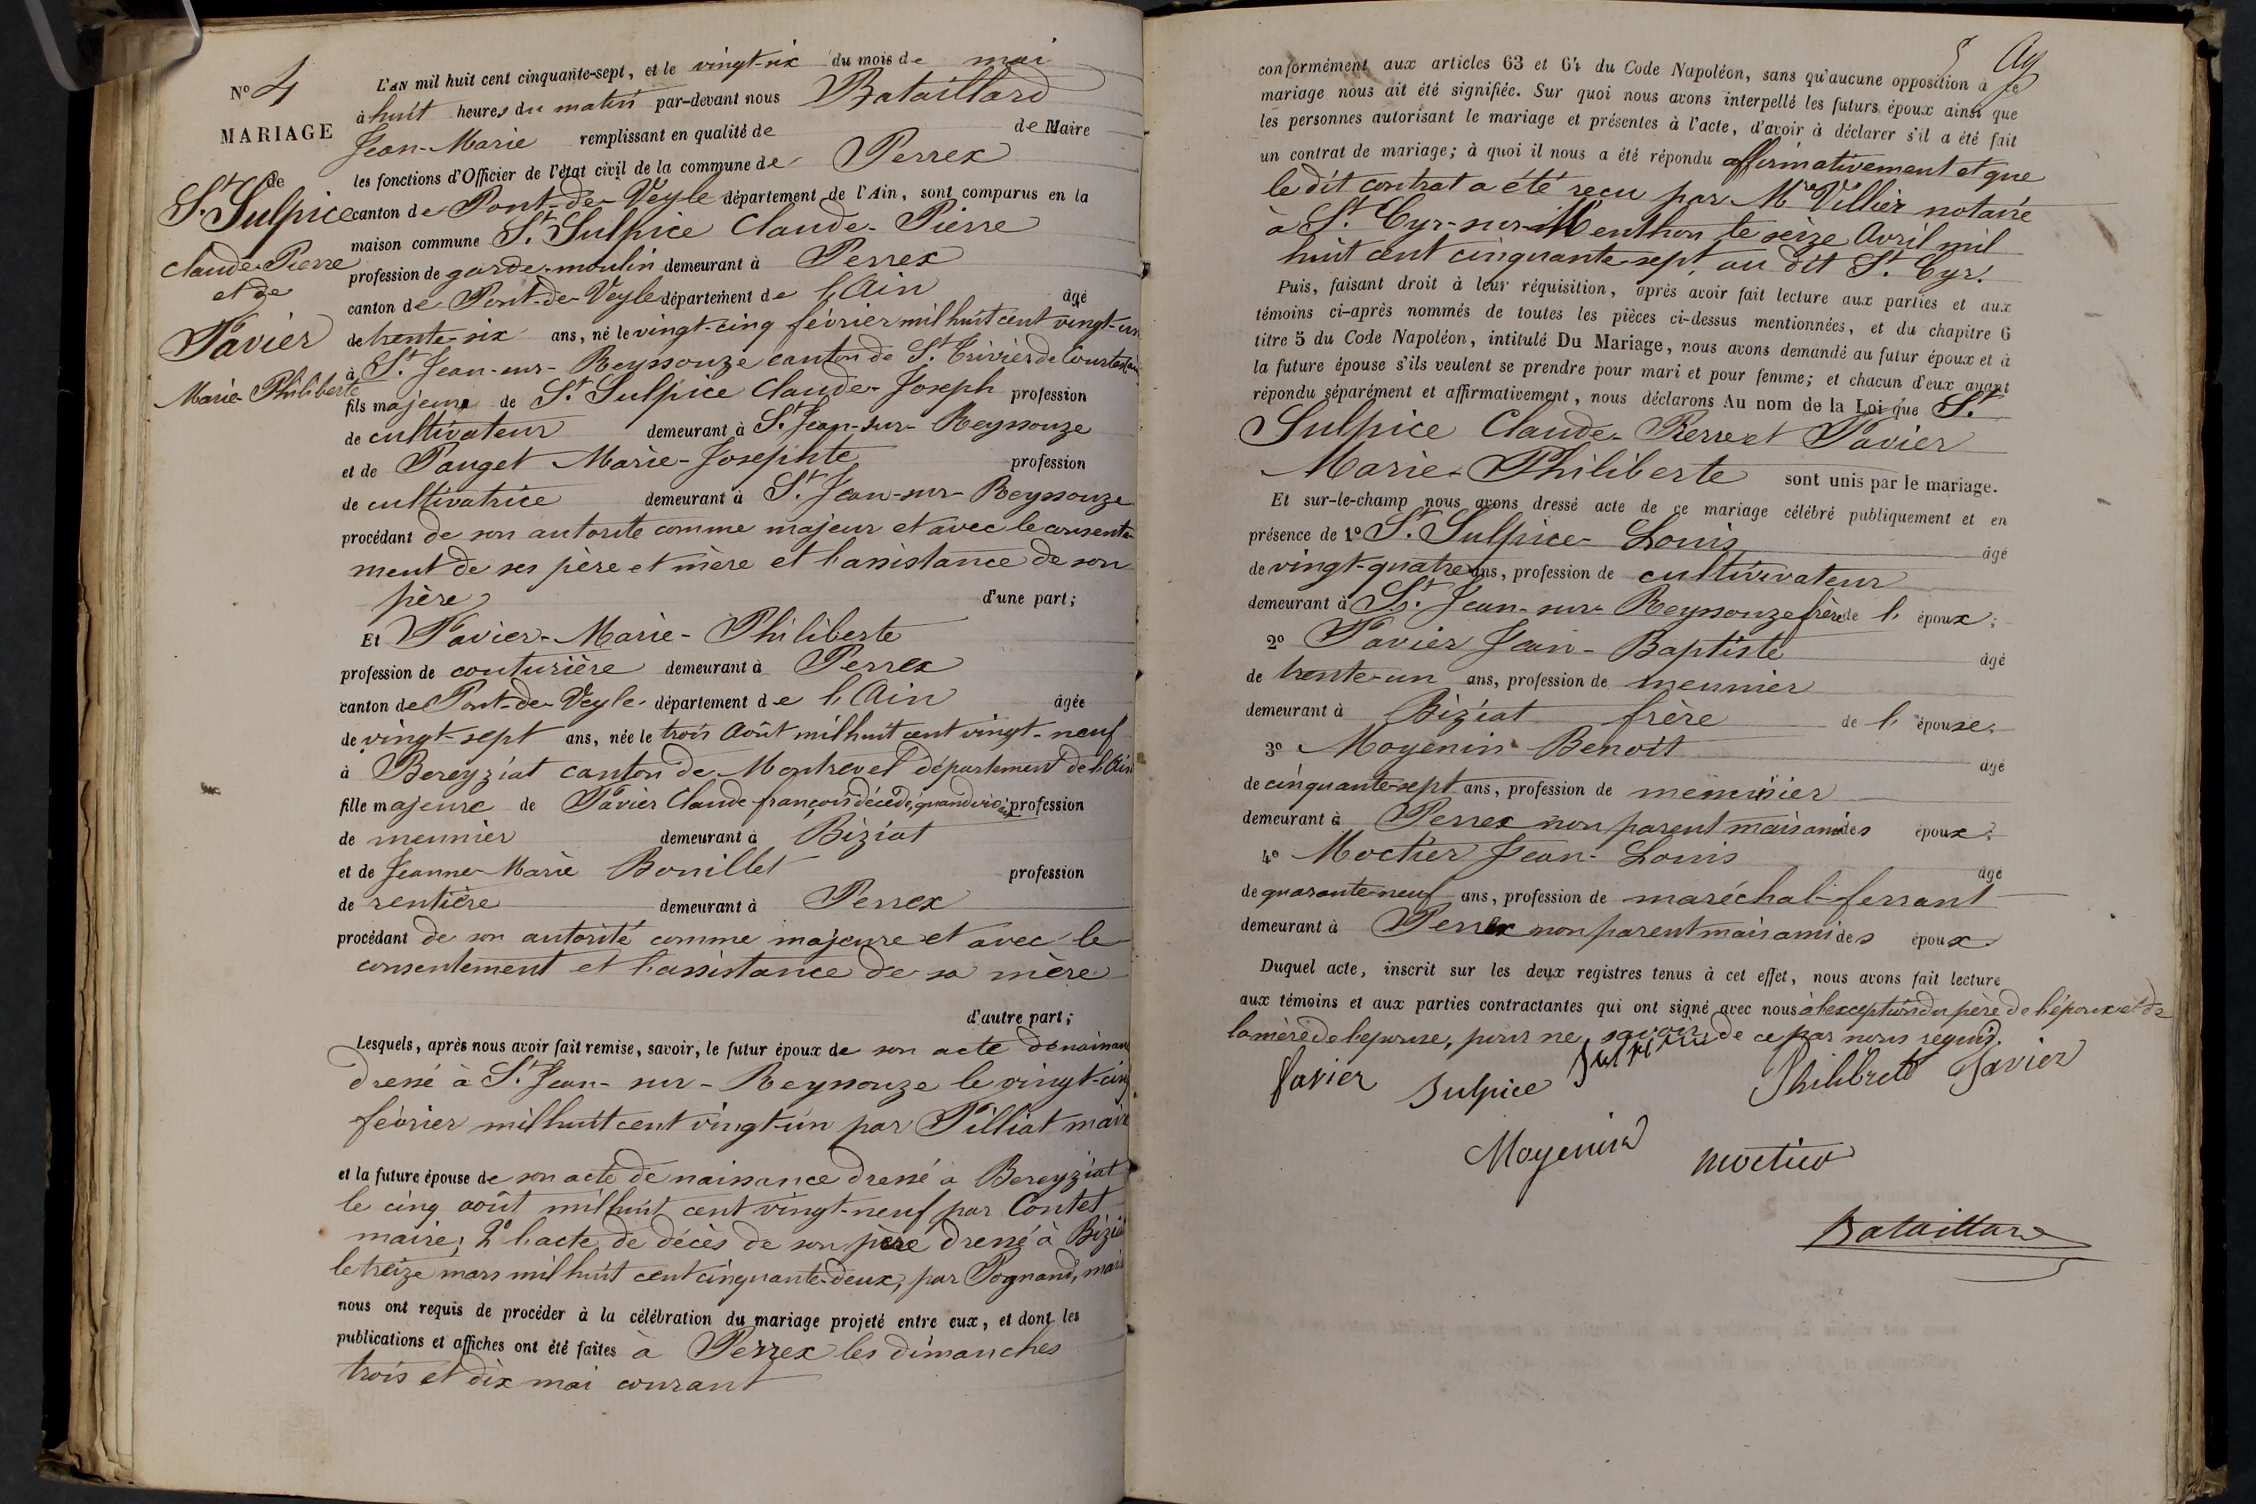 N° 4
MARIAGE
de
St. Sulpice
Claude-Pierre
et de
Favier
Marie Philiberte
L'AN mil huit cent cinquante-sept, et le vingt-six du mois de mai
à huit heures du matin par-devant nous Bataillard
Jean-Marie remplissant en qualité de de Maire
les fonctions d'Officier de l'état civil de la commune de Perrex
canton de Pont-de-Veyle département de l'Ain, sont comparus en la
maison commune St. Sulpice Claude-Pierre
profession de garde-moulin demeurant à Perrex
canton de Pont-de-Veyle département de l'Ain âgé
de trente-six ans, né le vingt-cinq février mil huit cent vingt-un
à St. Jean-sur-Reyssouze canton de St. Trivier de Courtes
fils majeur de St. Sulpice Claude-Joseph profession
de cultivateur demeurant à St. Jean-sur-Reyssouze
et de Pauget Marie-Josephte profession
de cultivatrice demeurant à St. Jean-sur-Reyssouze
procédant de son autorité comme majeur et avec le consente-
ment de ses père et mère et l'assistance de son
père d'une part;
Et Favier-Marie-Philiberte
profession de couturière demeurant à Perrex
canton de Pont-de-Veyle département de l'Ain âgée
de vingt-sept ans, née le trois Août mil huit cent vingt-neuf
à Bereyziat canton de Montrevel département de l'Ain
fille majeure de Favier Claude-françois décédé, quand vivait profession
de meunier demeurant à Biziat
et de Jeanne-Marie Bouillet profession
de rentière demeurant à Perrex
procédant de son autorité comme majeure et avec le
consentement et l'assistance de sa mère
d'autre part;
Lesquels, après nous avoir fait remise, savoir, le futur époux de son acte de naissance
dressé à St. Jean-sur-Reyssouze le vingt-cinq
février mil huit cent vingt-un par Pilliat maire
et la future épouse de son acte de naissance dressé à Bereyziat
le cinq août mil huit cent vingt-neuf par Contet
maire; 2° l'acte de décès de son père dressé à Biziat
le treize mars mil huit cent cinquante-deux, par Pognand, maire
nous ont requis de procéder à la célébration du mariage projeté entre eux, et dont les
publications et affiches ont été faites à Perrex les dimanches
trois et dix mai courant
5
conformément aux articles 63 et 64 du Code Napoléon, sans qu'aucune opposition à ce
mariage nous ait été signifiée. Sur quoi nous avons interpellé les futurs époux ainsi que
les personnes autorisant le mariage et présentes à l'acte, d'avoir à déclarer s'il a été fait
un contrat de mariage; à quoi il nous a été répondu affirmativement et que
le dit contrat a été reçu par Mre Villier notaire
à St. Cyr-sur-Menthon le seize Avril mil
huit cent cinquante-sept, au dit St. Cyr.
Puis, faisant droit à leur réquisition, après avoir fait lecture aux parties et aux
témoins ci-après nommés de toutes les pièces ci-dessus mentionnées, et du chapitre 6
titre 5 du Code Napoléon, intitulé Du Mariage, nous avons demandé au futur époux et à
la future épouse s'ils veulent se prendre pour mari et pour femme; et chacun d'eux ayant
répondu séparément et affirmativement, nous déclarons Au nom de la Loi que St.
Sulpice Claude-Pierre et Favier
Marie-Philiberte sont unis par le mariage.
Et sur-le-champ nous avons dressé acte de ce mariage célébré publiquement et en
présence de 1° St. Sulpice-Louis âgé
de vingt-quatre ans, profession de cultivivateur
demeurant à St. Jean-sur-Reyssouze frère de l'époux;
2° Favier Jean-Baptiste âgé
de trente-un ans, profession de meunier
demeurant à Biziat frère de l'épouse;
3° Moyenin Benoit âgé
de cinquante-sept ans, profession de menuisier
demeurant à Perrex non parent mais ami des époux;
4° Moctier Jean-Louis âgé
de quarante-neuf ans, profession de maréchal-ferrant
demeurant à Perrex non parent mais ami des époux
Duquel acte, inscrit sur les deux registres tenus à cet effet, nous avons fait lecture
aux témoins et aux parties contractantes qui ont signé avec nous à l'exception du père de l'époux et de
la mère de l'épouse, pour ne savoir de ce par nous requis.
favier Sulpice Sulpice Philibrete Favier
Moyenin moctier
Bataillard